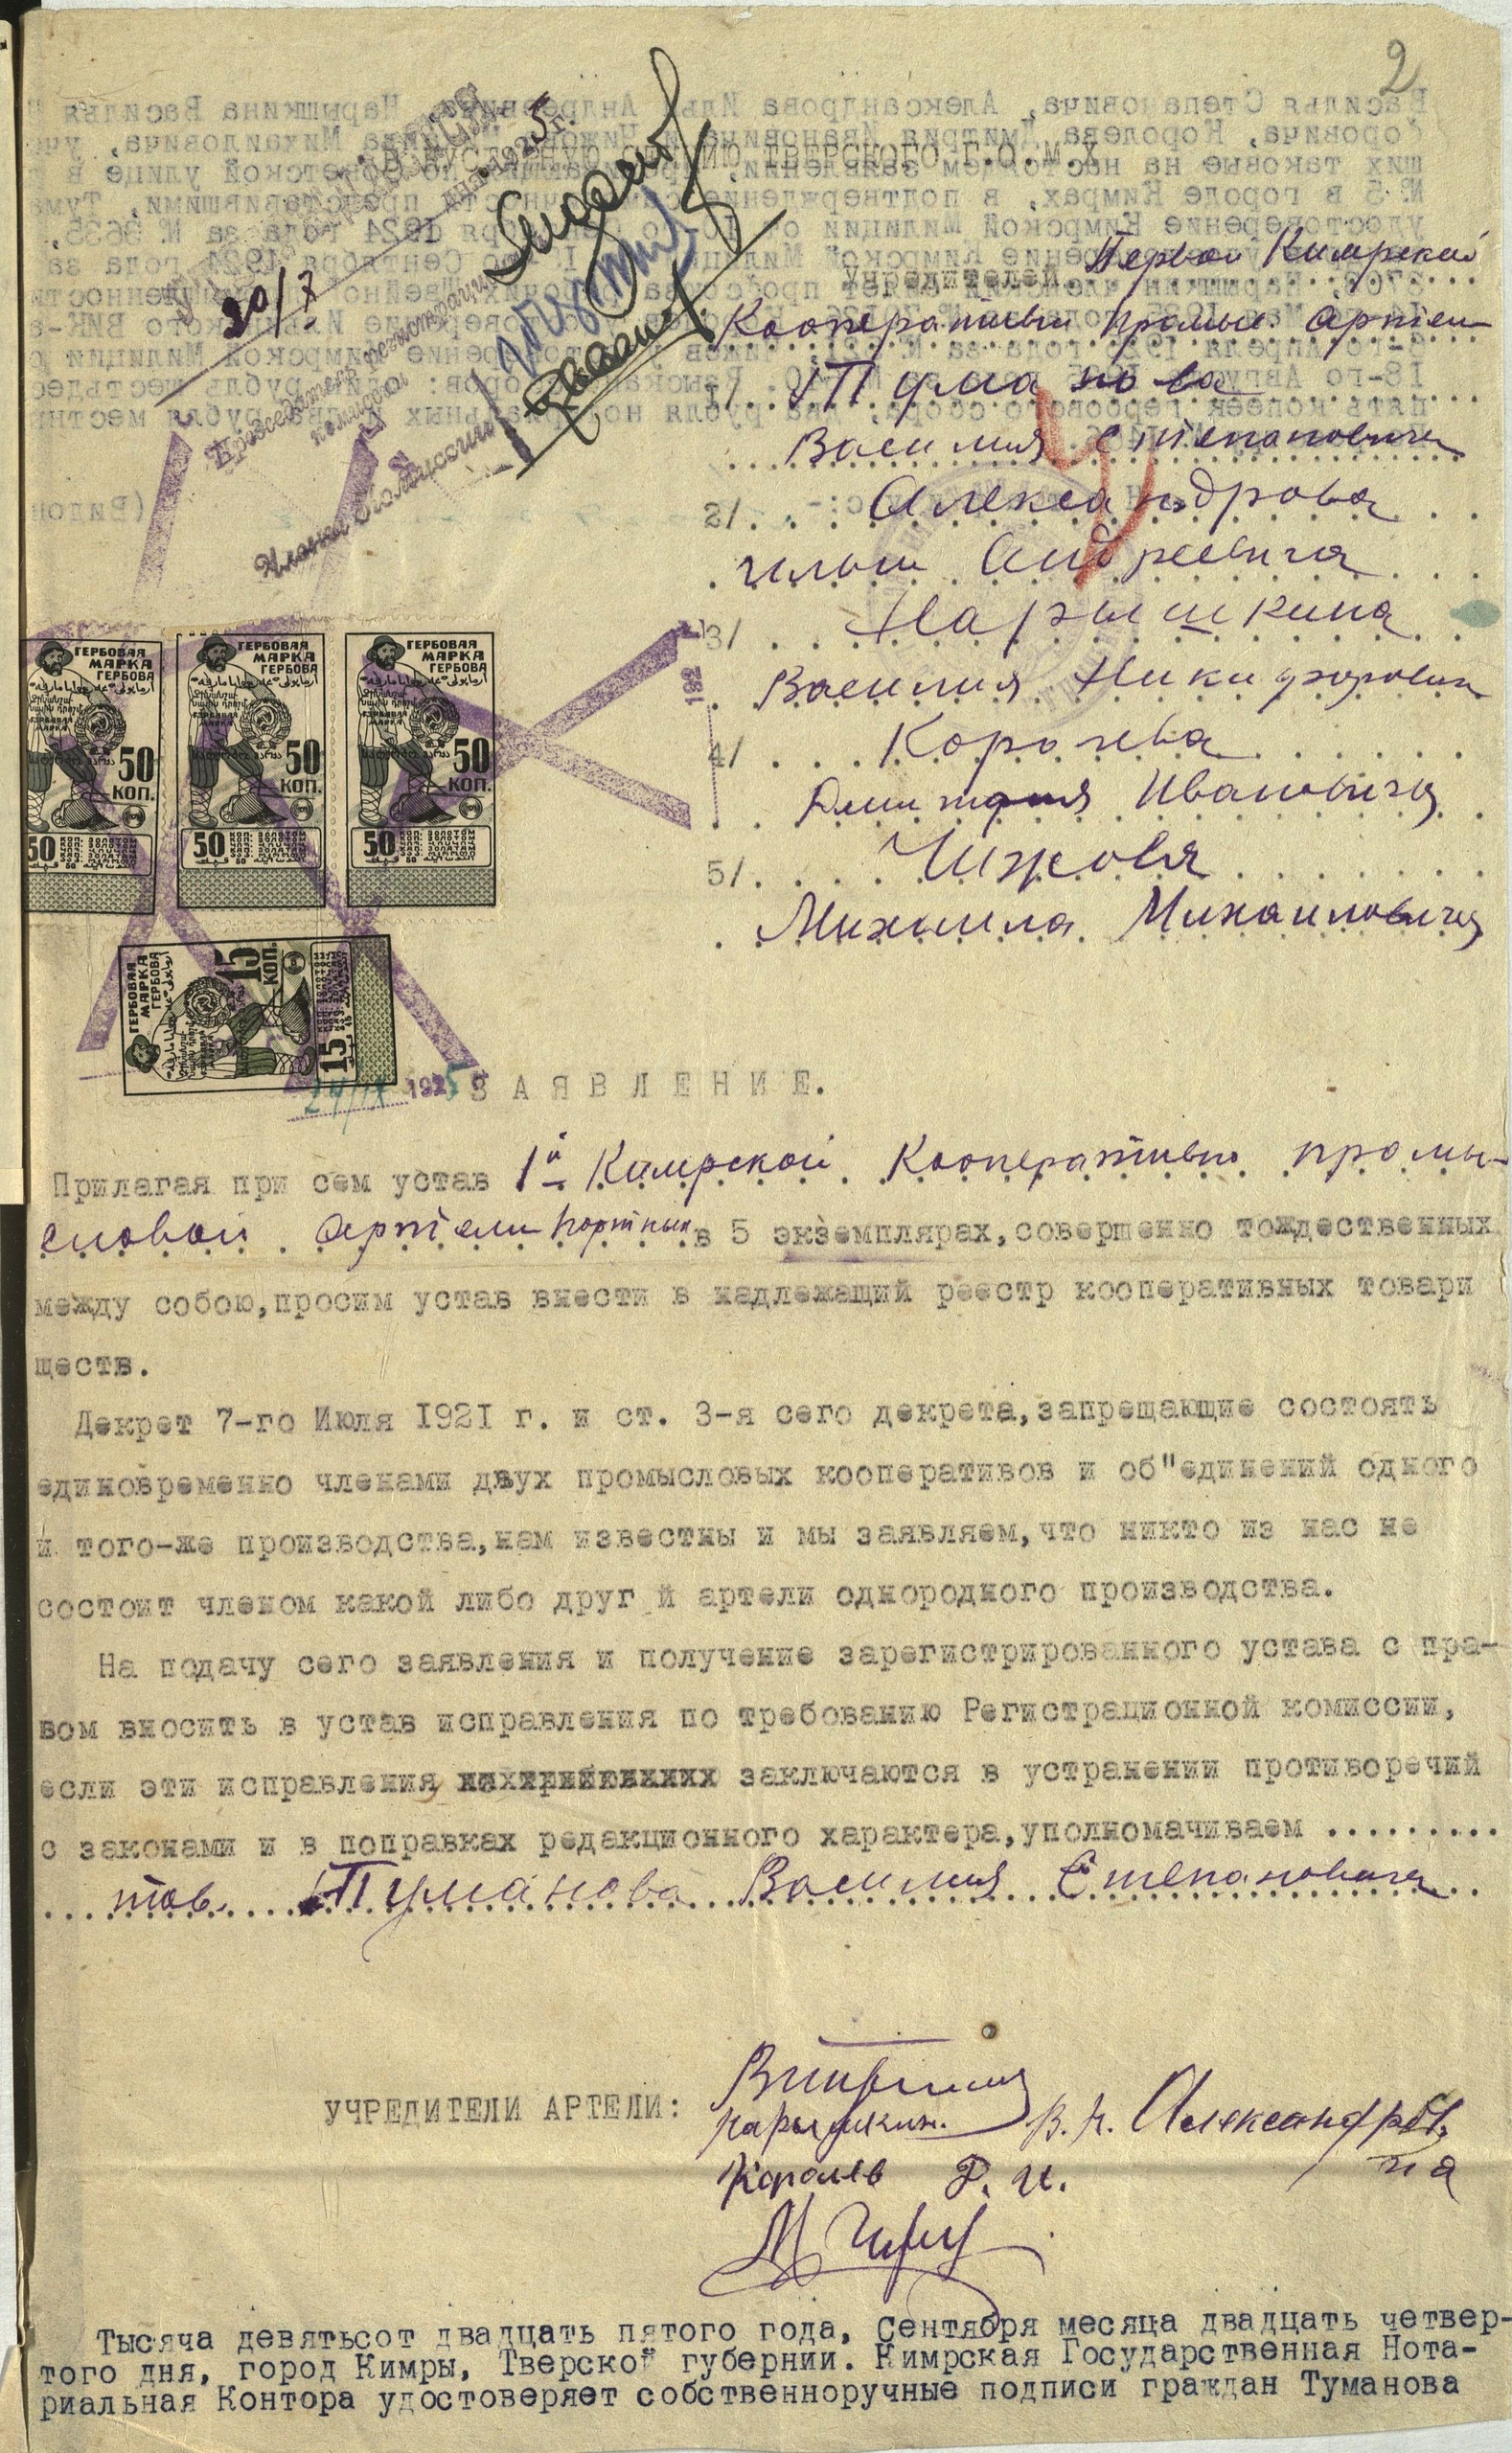 2
В КУСТАРНУЮ СЕКЦИЮ ТВЕРСКОГО Г.О.М.Х.
20/7
Председатель регистрацион.
комиссии
Члены Комиссии
учредителей Первой Кимрской
Кооперативн промыс. артели
1/ Туманова
Василия Степановича
2/ Александрова
Ильи Андреевича
3/ Нарышкина
Василия Никифоровича
4/ Королева
Дмитрия Ивановича
5/ Чижова
Михаила Михаиловича
192
ГЕРБОВАЯ МАРКА ГЕРБОВА
50 КОП.
50
ГЕРБОВАЯ МАРКА ГЕРБОВА
50 КОП.
50
ГЕРБОВАЯ МАРКА ГЕРБОВА
50 КОП.
50
ГЕРБОВАЯ МАРКА ГЕРБОВА
15 КОП.
15
24/IX 1925
ЗАЯВЛЕНИЕ.
Прилагая при сем устав 1й Кимрской Кооперативно промы-
словой Артели портных в 5 экземплярах, совершенно тождественных
между собою, просим устав внести в надлежащий реестр кооперативных товари
ществ.
Декрет 7-го Июля 1921 г. и ст. 3-я сего декрета, запрещающие состоять
единовременно членами двух промысловых кооперативов и об"единений одного
и того-же производства, нам известны и мы заявляем, что никто из нас не
состоит членом какой либо друг й артели однородного производства.
На подачу сего заявления и получение зарегистрированного устава с пра-
вом вносить в устав исправления по требованию Регистрационной комиссии,
если эти исправления заключаются в устранении противоречий
с законами и в поправках редакционного характера, уполномачиваем .........
тов. Туманова Василия Степановича
УЧРЕДИТЕЛИ АРТЕЛИ:
Нарышкин. В. Н. Александров
И А
Королев Д. И.
Тысяча девятьсот двадцать пятого года, Сентября месяца двадцать четвер-
того дня, город Кимры, Тверской губернии. Кимрская Государственная Нота-
риальная Контора удостоверяет собственноручные подписи граждан Туманова